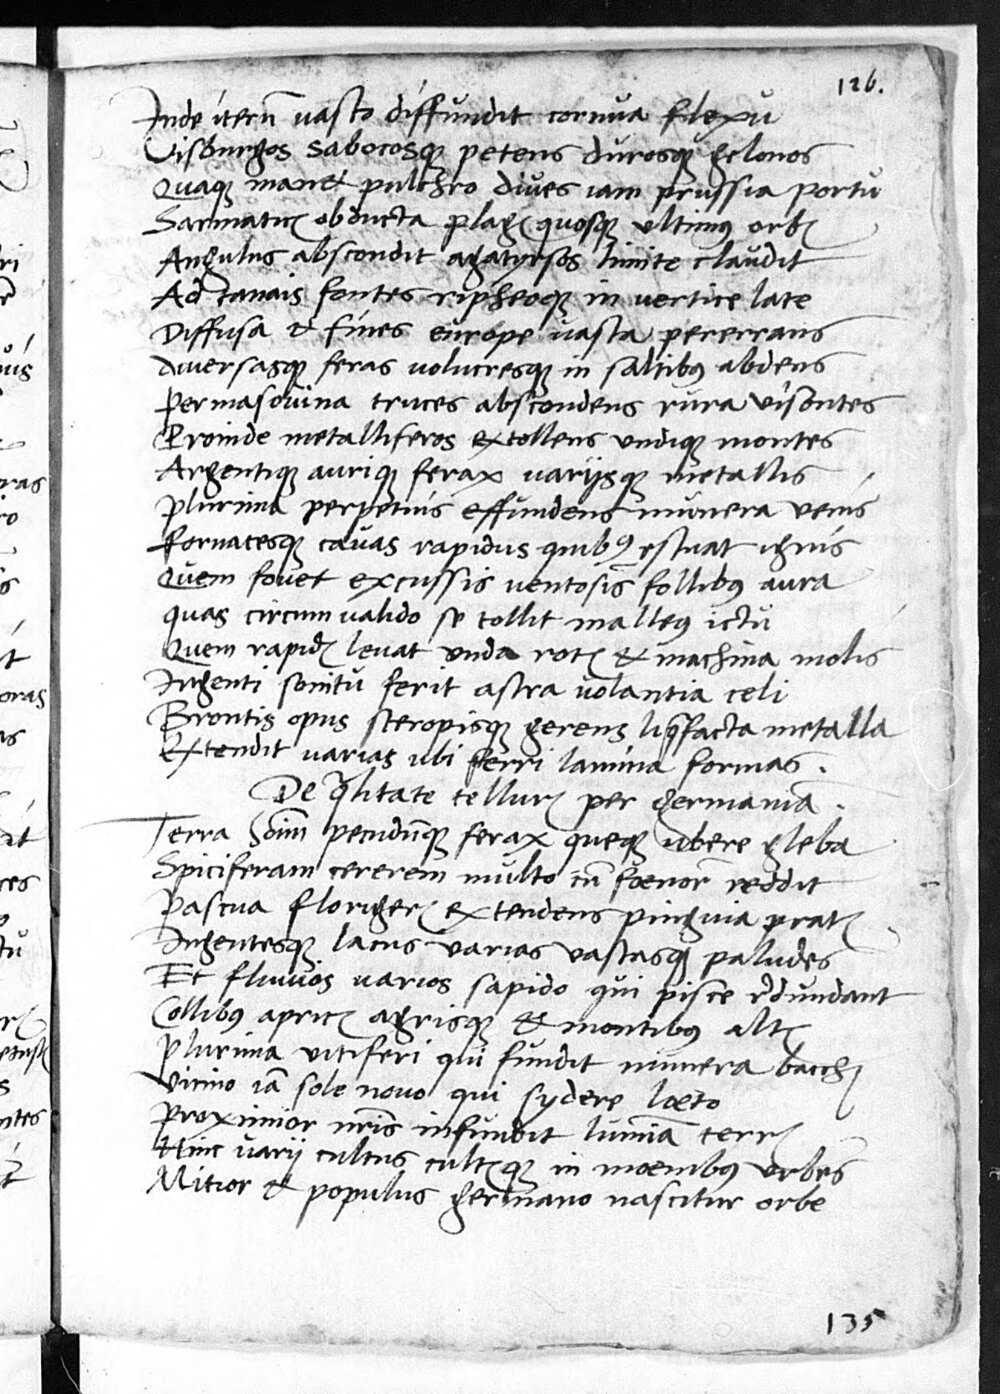 126.
Inde iterũ vasto diffundit cornua flexu
Visburgos sabocosq petens durosq gelonos
Quaq manet pulchro dives iam prussia portu
Sarmaticꝭ obducta plagꝭ quosq ultimus orbꝭ
Angulus abscondit agatyrsos limite claudit
Ad tanais fontes ripheoq in vertice late
Diffusa & fines europe vasta pererrans
Diversasq feras volucresq in saltibus abdens
Per masovina truces abscondens rura visontes
Proinde metalliferos extollens undiq montes
Argentiq auriq ferax variisq metallis
Plurima perpetuis effundens munera venis
Fornacesq cavas rapidus quibus ęstuat ignis
Quem fovet excussis ventosis follibus aura
quas circum valido se tollit malleus ictu
Quem rapidꝭ levat unda rotꝭ & machina molis
Ingenti sonitu ferit astra volantia celi
Brontis opus steropisq gerens liqfacta metalla
Extendit varias ubi ferri lamina formas.
De qlitate tellurꝭ per germaniã.
Terra hoim pecudũq ferax queq ubere gleba
Spiciferam cererem multo cũ foenore reddit
Pascua florigerꝭ extendens pinguia pratꝭ
Ingentesq lacus varias vastasq paludes
Et fluvios varios sapido qui pisce redundant
Collibus apricꝭ agrisq & montibus altꝭ
Plurima vitiferi qui fundit munera bacchꝭ
Vicino iã sole novo qui sydere læto
Proximior nris infundit luminã terrꝭ
Hinc varii cultus cultꝭq in moenibus urbes
Mitior & populus germano nascitur orbe
135